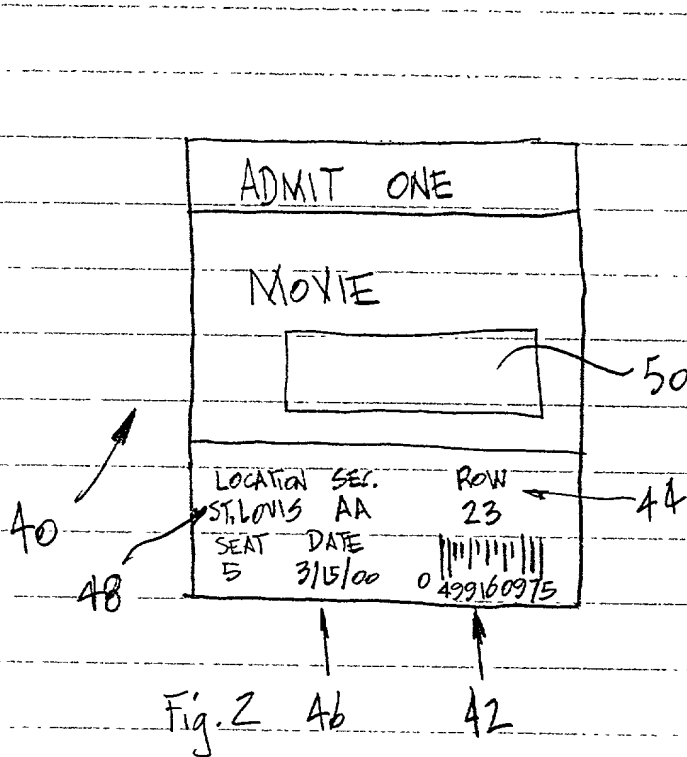 ADMIT ONE
MOVIE
50
LOCATION SEC. ROW
ST. LOUIS AA 23
44
40
SEAT DATE
5 3/15/00 0 499160975
48
Fig. 2 46 42